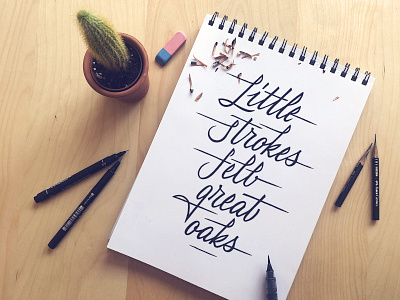 Little
strokes
fell
great
oaks